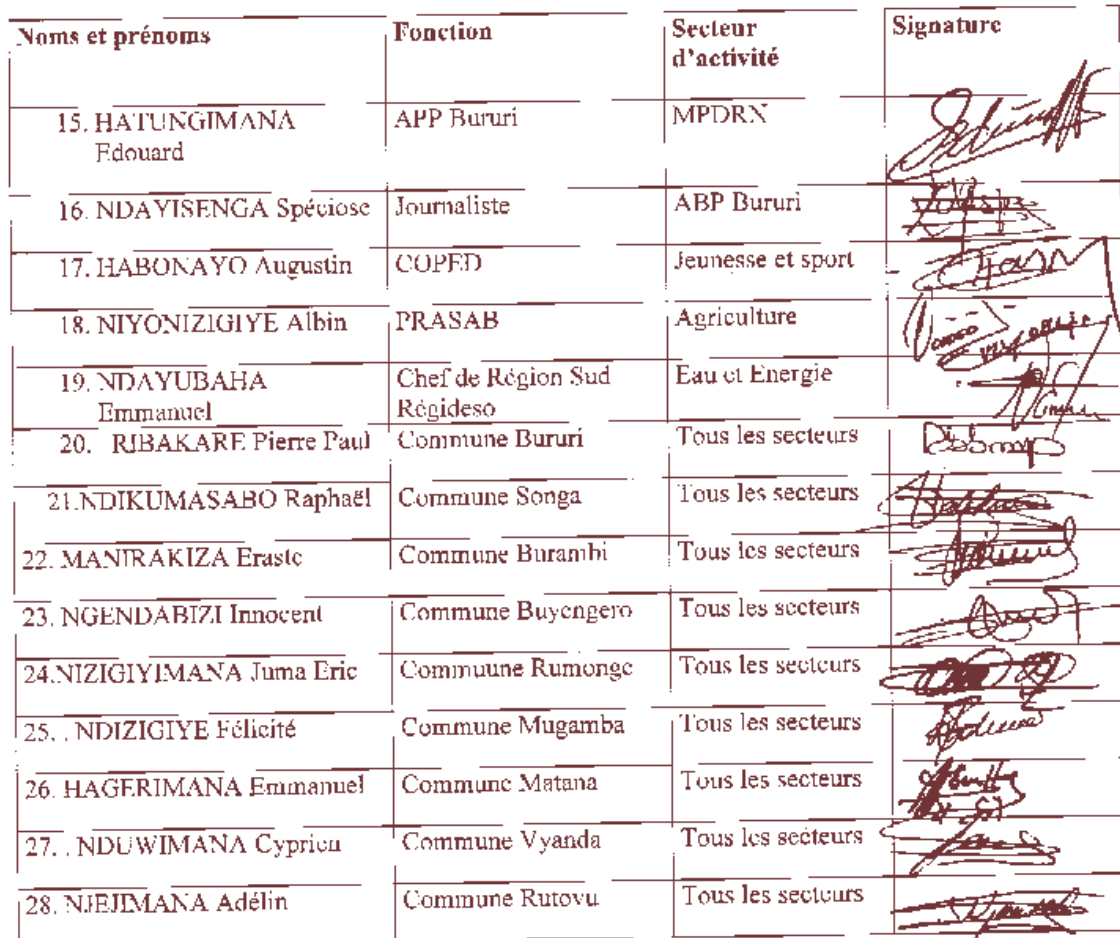 Noms et prénoms Fonction Secteur d'activité Signature
15. HATUNGIMANA Edouard APP Bururi MPDRN
16. NDAYISENGA Spéciose Journaliste ABP Bururi
17. HABONAYO Augustin COPED Jeunesse et sport
18. NIYONIZIGIYE Albin PRASAB Agriculture
19. NDAYUBAHA Emmanuel Chef de Région Sud Régideso Eau et Energie
20. RIBAKARE Pierre Paul Commune Bururi Tous les secteurs
21.NDIKUMASABO Raphaël Commune Songa Tous les secteurs
22. MANIRAKIZA Eraste Commune Burambi Tous les secteurs
23. NGENDABIZI Innocent Commune Buyengero Tous les secteurs
24.NIZIGIYIMANA Juma Eric Commuune Rumonge Tous les secteurs
25. . NDIZIGIYE Félicité Commune Mugamba Tous les secteurs
26. HAGERIMANA Emmanuel Commune Matana Tous les secteurs
27. . NDUWIMANA Cyprien Commune Vyanda Tous les secteurs
28. NJEJIMANA Adélin Commune Rutovu Tous les secteurs